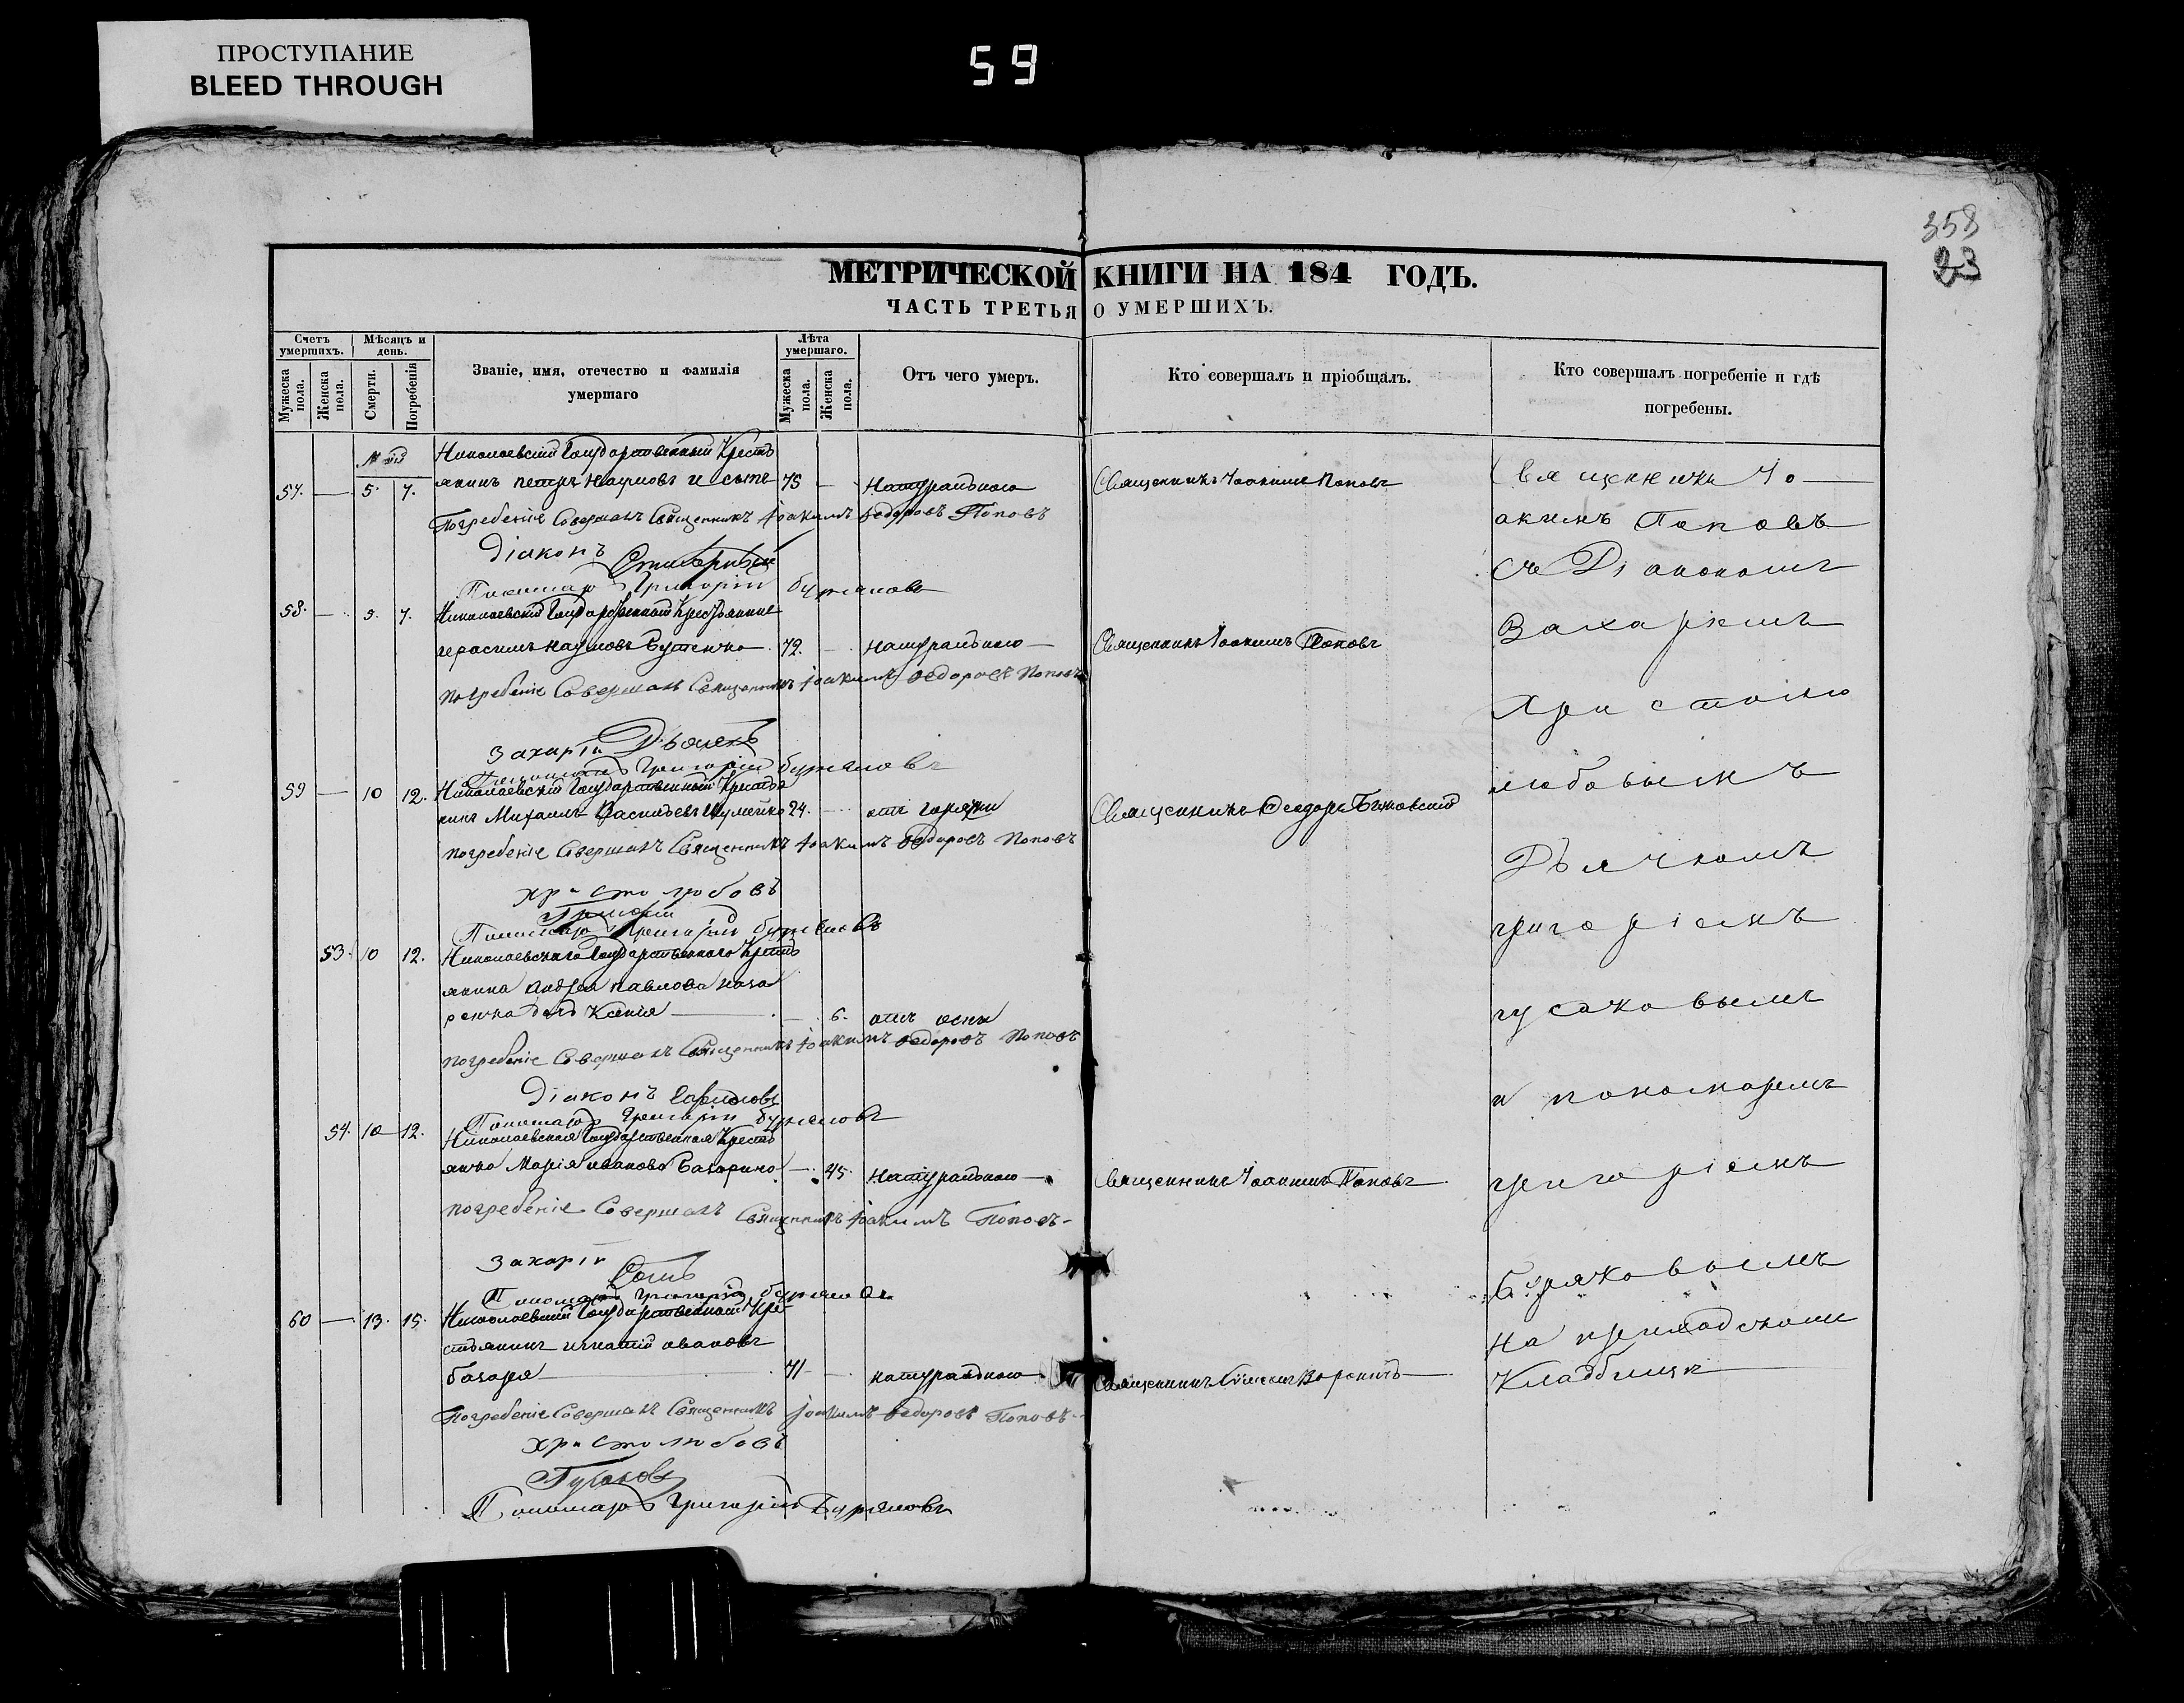 ПРОСТУПАНИЕ
BLEED THROUGH
59
358
23
МЕТРИЧЕСКОЙ КНИГИ НА 184 ГОДЪ.
ЧАСТЬ ТРЕТЬЯ О УМЕРШИХЪ.
Счетъ умершихъ.
Мѣсяцъ и день.
Лѣта умершаго.
Мужеска пола.
Женска пола.
Смерти.
Погребенія
Званіе, имя, отечество и фамилія умершаго
Мужеска пола.
Женска пола.
Отъ чего умеръ.
Кто совершалъ и пріобщалъ.
Кто совершалъ погребеніе и гдѣ погребены.
Май
Николаевскій Государственный Крестъ
57. — 5. 7. янинъ петръ наумовъ 75 — Натуральною Священникъ Іоакимъ Поповъ
Погребеніе Совершалъ Священникъ Іоакимъ Федоровъ Поповъ
Діаконъ
Пономарь Григорій Буряковъ
58. — 5. 7. Николаевскій Государственный Крестьянинъ
герасимъ наумовъ 72. — натуральною — Священникъ Іоакимъ Поповъ
погребеніе Совершалъ Священникъ Іоакимъ Федоровъ Поповъ
Захарій
Пономарь Григорій Буряковъ
59 — 10 12. Николаевскій Государственный Крестья
нинъ Михаилъ Васильевъ Шумейко 24. — отъ горячки Священникъ Феодоръ
погребеніе Совершалъ Священникъ Іоакимъ Федоровъ Поповъ
христолюбовъ
Григорій
Пономарь Григорій Буряковъ
53. 10 12. Николаевскаго Государственнаго Крестъ
янина Андрея Павлова
дочь Ксенія — 6. отъ оспы
погребеніе Совершалъ Священникъ Іоакимъ Федоровъ Поповъ
Діаконъ
Пономарь Григорій Буряковъ
54. 10 12. Николаевская Государственная Крестъ
янка Марія иванова — 45. Натуральною — Священникъ Іоакимъ Поповъ
погребеніе Совершалъ Священникъ Іоакимъ Поповъ
Захарій
Пономарь Григорій Буряковъ
60 — 13. 15. Николаевскій Государственный Кре-
стьянинъ игнатій ивановъ
71 — натуральною Священникъ
Погребеніе Совершалъ Священникъ Іоакимъ Федоровъ Поповъ
христолюбовъ
Гусаковъ
Пономарь Григорій Буряковъ
Священникъ Іо—
акимъ Поповъ
съ Діакономъ
Захаріемъ
Христо
любовымъ
Дьячкомъ
григоріемъ
гусаковымъ
и пономаремъ
григоріемъ
Буряковымъ
На приходскомъ
Кладбищѣ